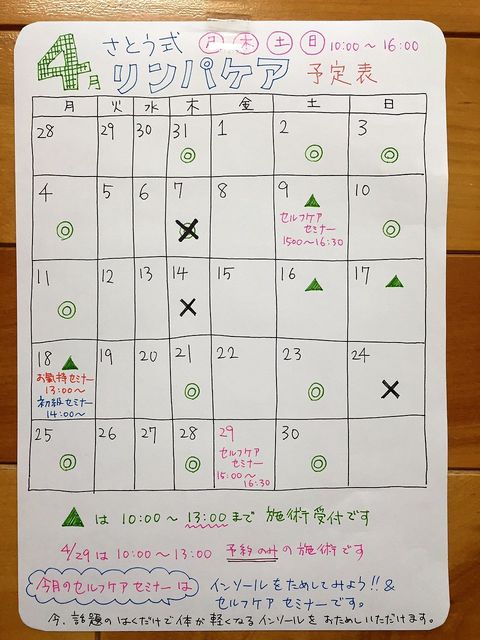 4月 さとう式 月 木 土 日 10:00〜16:00
リンパケア 予定表
月 火 水 木 金 土 日
28 29 30 31 1 2 3
◎ ◎ ◎
4 5 6 7 8 9 ▲ 10
◎ ◎ セルフケア ◎
セミナー
1500〜16:30
11 12 13 14 15 16 17
◎ × ▲ ▲
18 ▲ 19 20 21 22 23 24
お氣持セミナー ◎ ◎ ×
13:00〜
初級セミナー
14:00〜
25 26 27 28 29 30
◎ ◎ セルフケア ◎
セミナー
15:00〜
16:30
▲ は 10:00〜13:00まで 施術受付です
4/29は10:00〜13:00 予約のみの施術です
今月のセルフケアセミナーは インソールをためしてみよう!!&
セルフケアセミナーです。
今、話題のはくだけで体が軽くなるインソールをおためしいただけます。